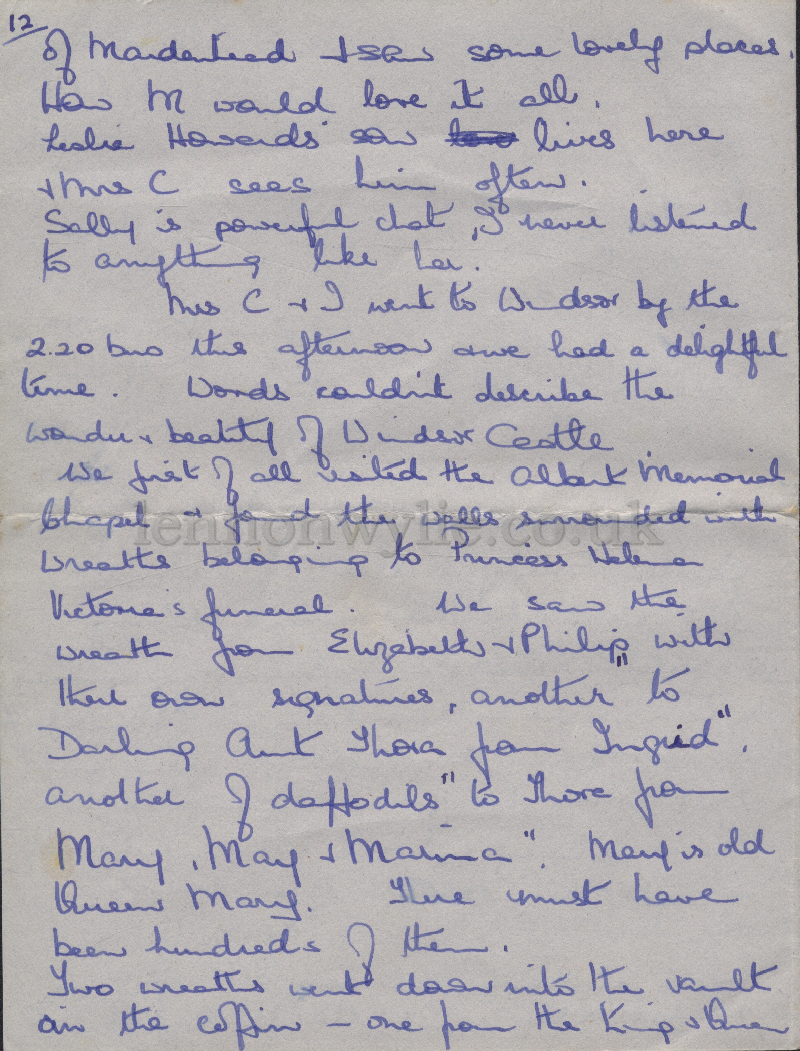 12
of Maidenhead + saw some lovely places.
How M would love it all.
Leslie Howards' son lives here
+ Mrs C sees him often.
Sally is powerful chat, I never listened
to anything like her.
Mrs C + I went to Windsor by the
2.20 bus this afternoon + we had a delightful
time. Words couldn't describe the
wonder + beauty of Windsor Castle
We first of all visited the Albert Memorial
Chapel + found the walls surrounded with
lennonwylie.co.uk
wreaths belonging to Princess Helena
Victoria's funeral. We saw the
wreath from Elizabeth + Philip with
their own signatures, another "to
Darling Aunt Thora from Ingrid",
another of daffodils "to Thora from
Mary, May + Marina". Mary is old
Queen Mary. There must have
been hundreds of them.
Two wreaths went down into the vault
on the coffin – one from the King + Queen